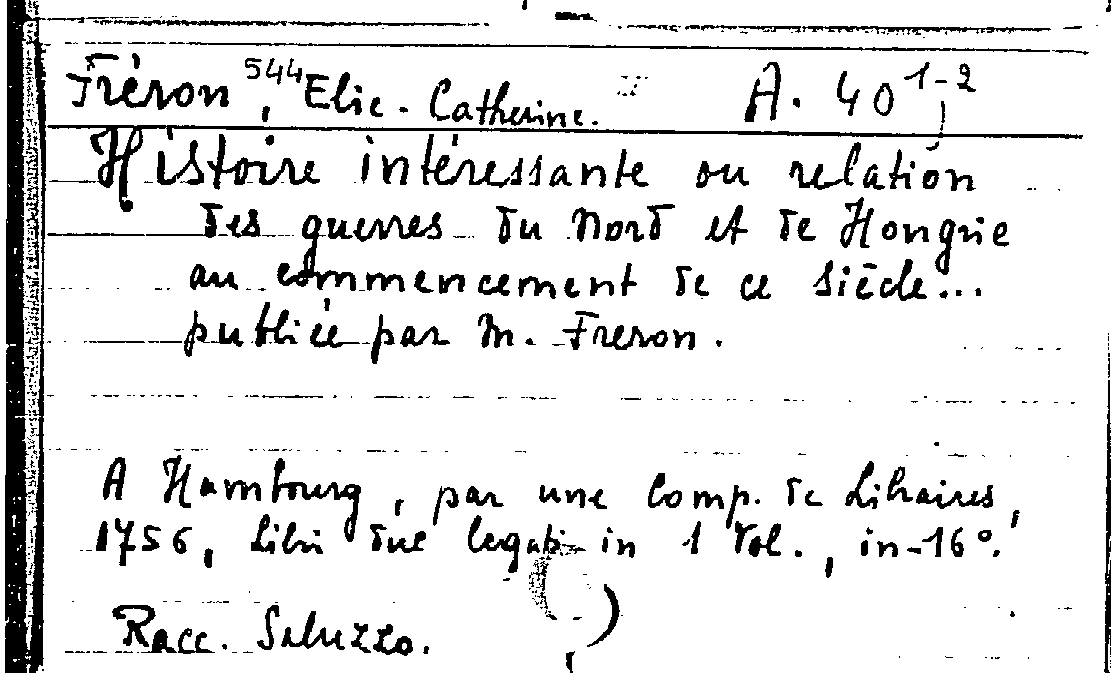 Fréron, 544 Elie-Catherine. A. 40 1-2
Histoire intéressante ou relation
des guerres du Nord et de Hongrie
au commencement de ce siècle...
publiée par M. Freron.
A Hambourg, par une Comp. de Libraires,
1756, Libri due legati in 1 Vol., in-16°.
Racc. Saluzzo.